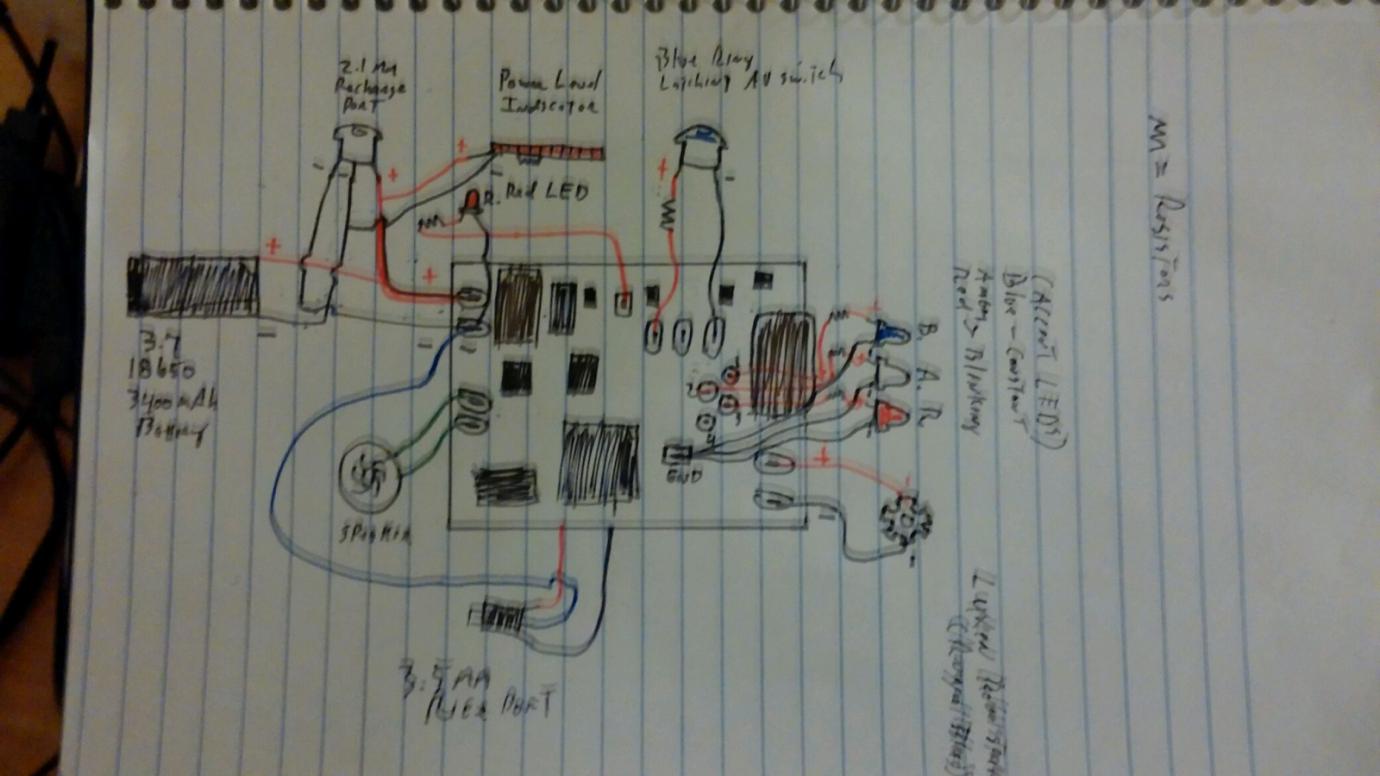 2.1 mm
Recharge
Port
Power Level
Indicator
Blue Ring
Latching AV switch
m = Resistors
R. Red LED
3.7
18650
3400 mAh
Battery
Speaker
GND
B A R
(Accent LEDs)
Blue - Constant
Amber
Red > Blinking
3.5
Port